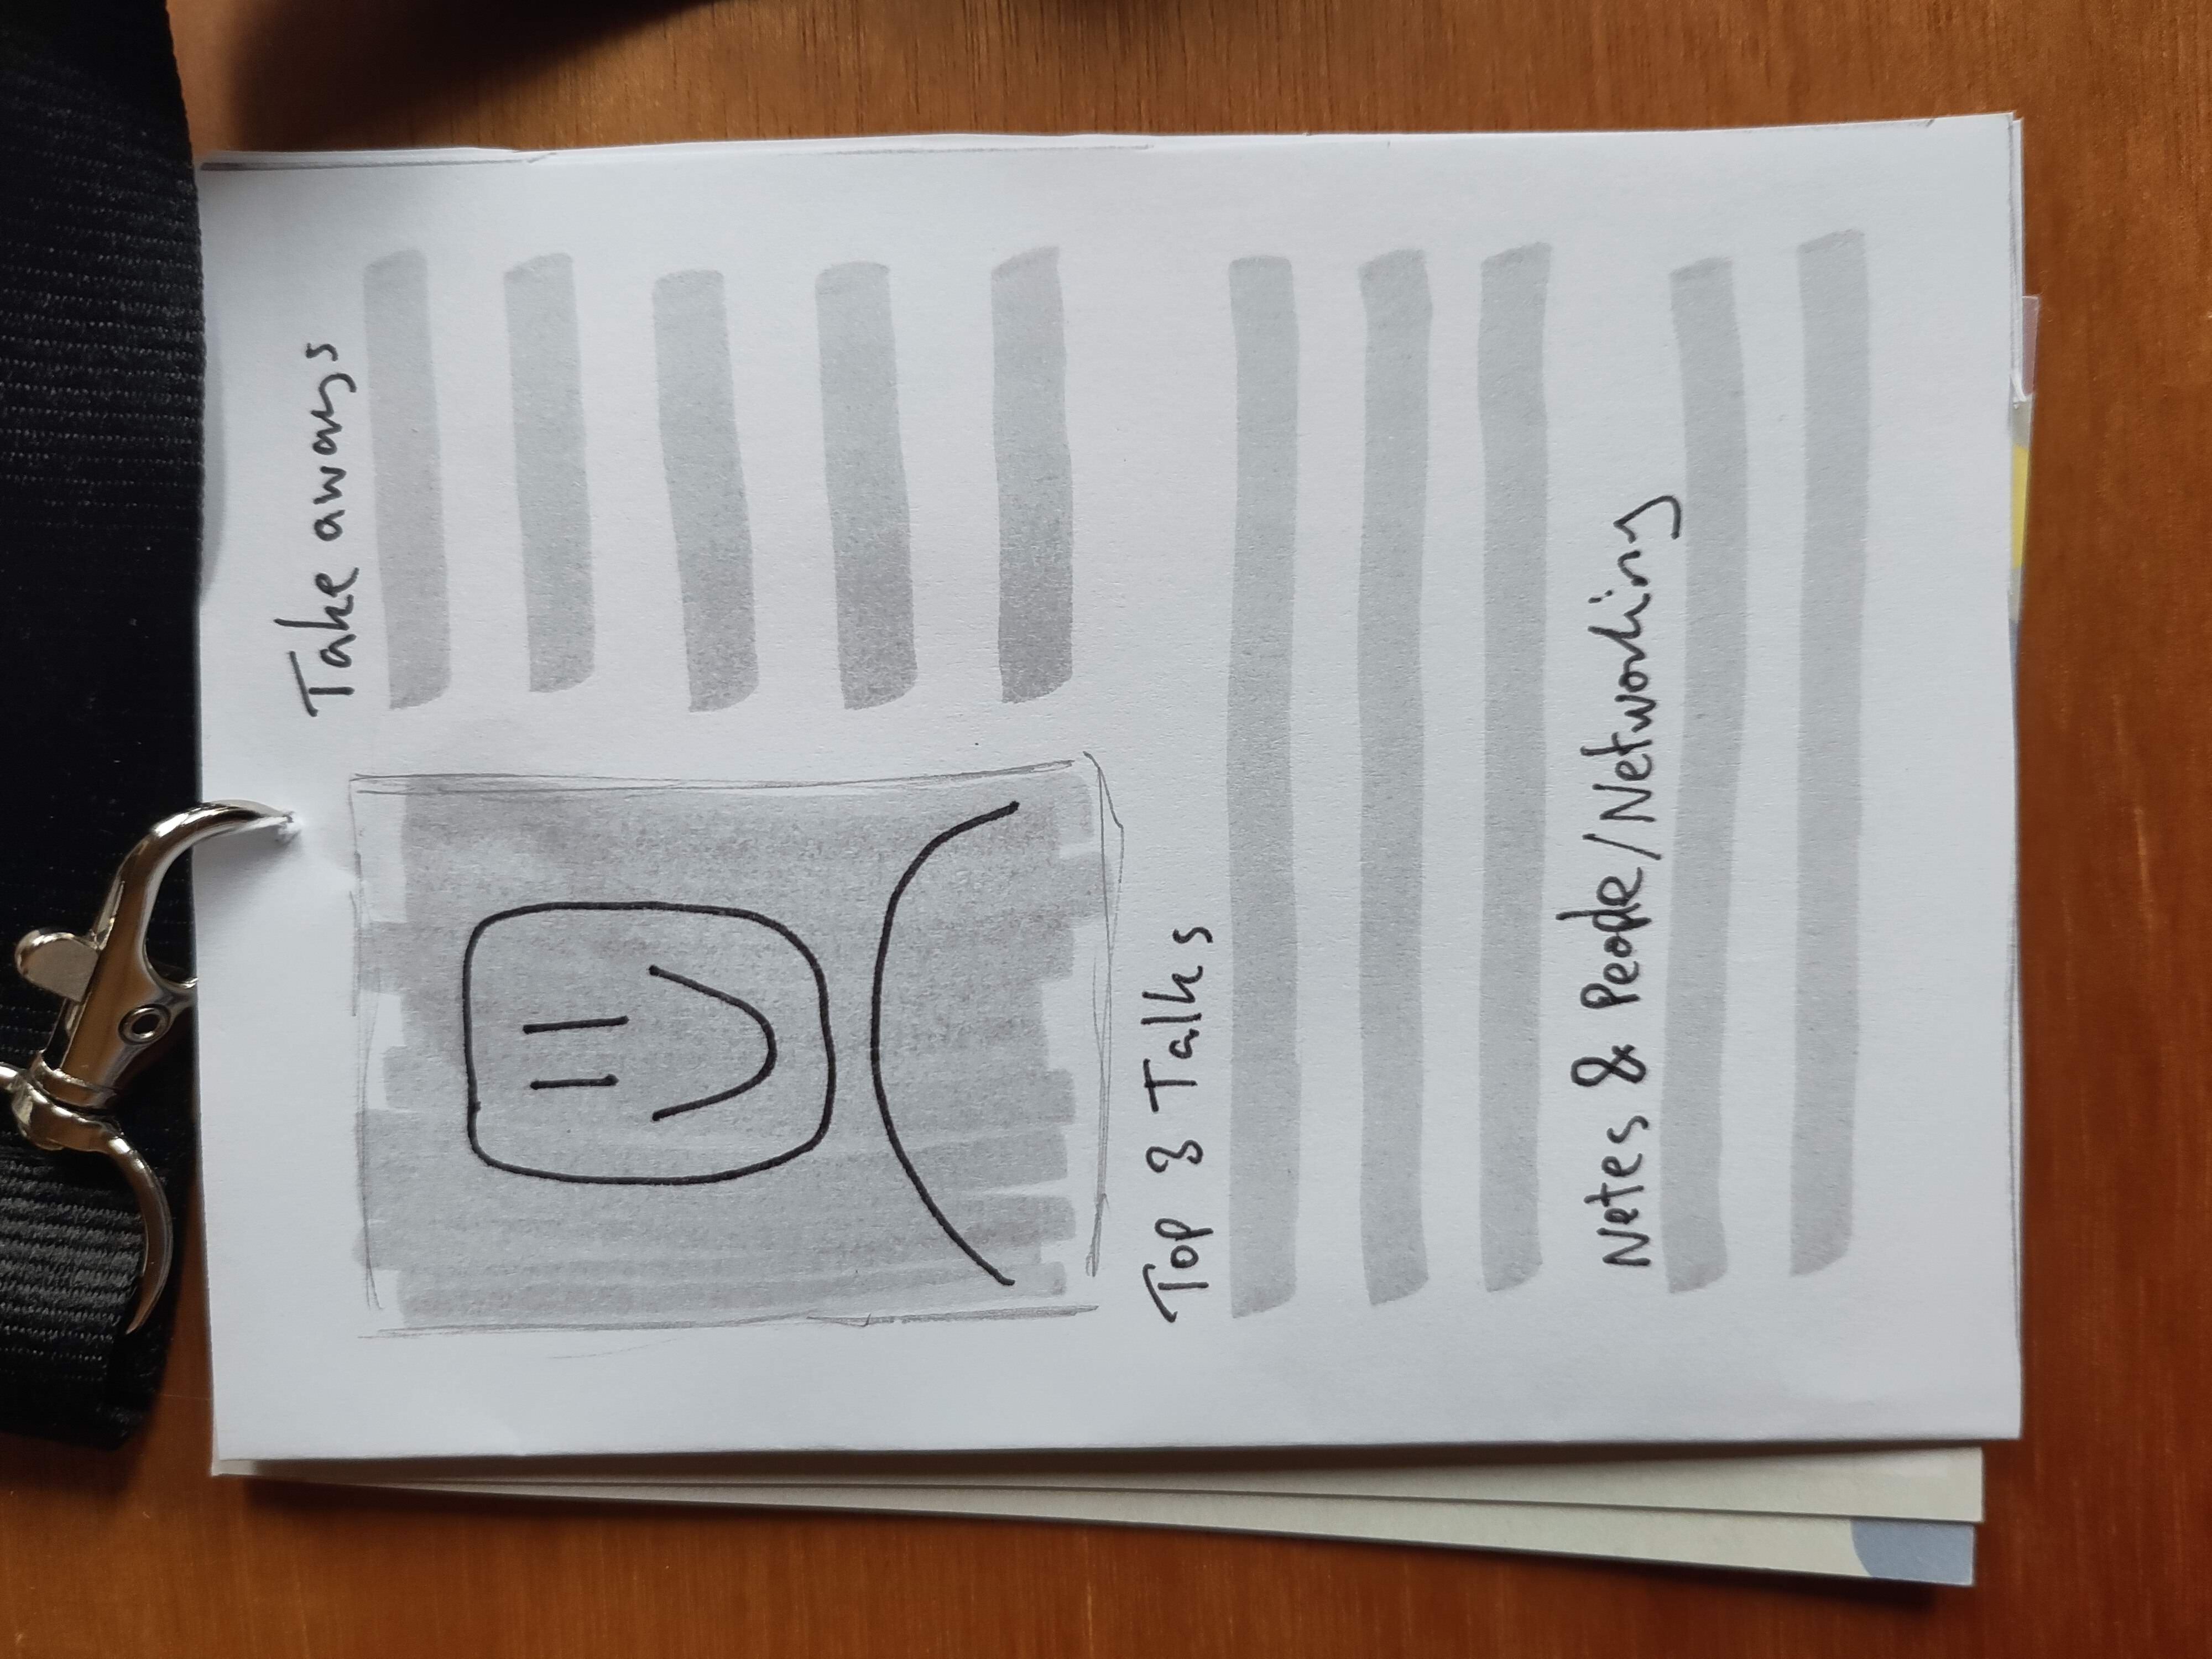 Take aways
Top 3 Talks
Notes & People/Networking